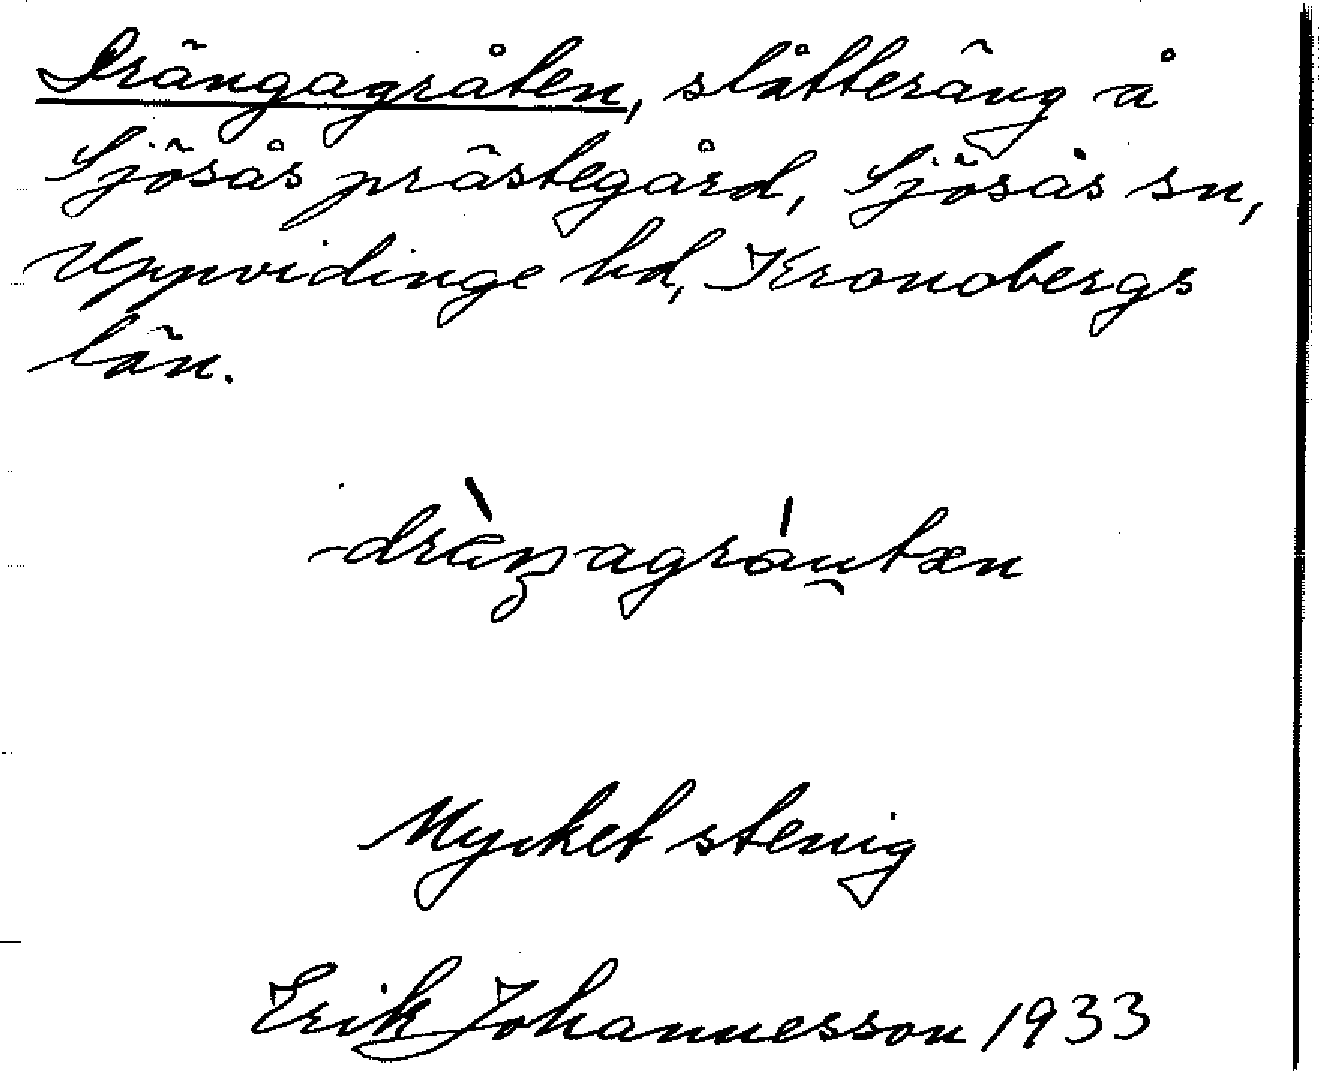 Drängagråten, slåtteräng å
Sjösås prästegård, Sjösås sn,
Uppvidinge hd, Kronobergs
län.
dràŋagráu̯tæn
Mycket stenig
Erik Johannesson 1933